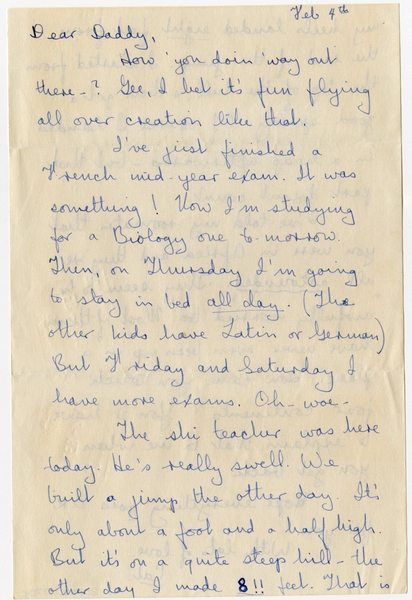 Feb 4th
Dear Daddy,
How 'you doin' 'way out
there-? Gee, I bet it's fun flying
all over creation like that.
I've just finished a
French mid-year exam. It was
something! Now I'm studying
for a Biology one to-morrow.
Then, on Thursday I'm going
to stay in bed all day. (The
other kids have Latin or German)
But Friday and Saturday I
have more exams. Oh-woe-
The ski teacher was here
today. He's really swell. We
built a jump the other day. It's
only about a foot and a half high.
But it's on a quite steep hill - the
other day I made 8!! feet. That is